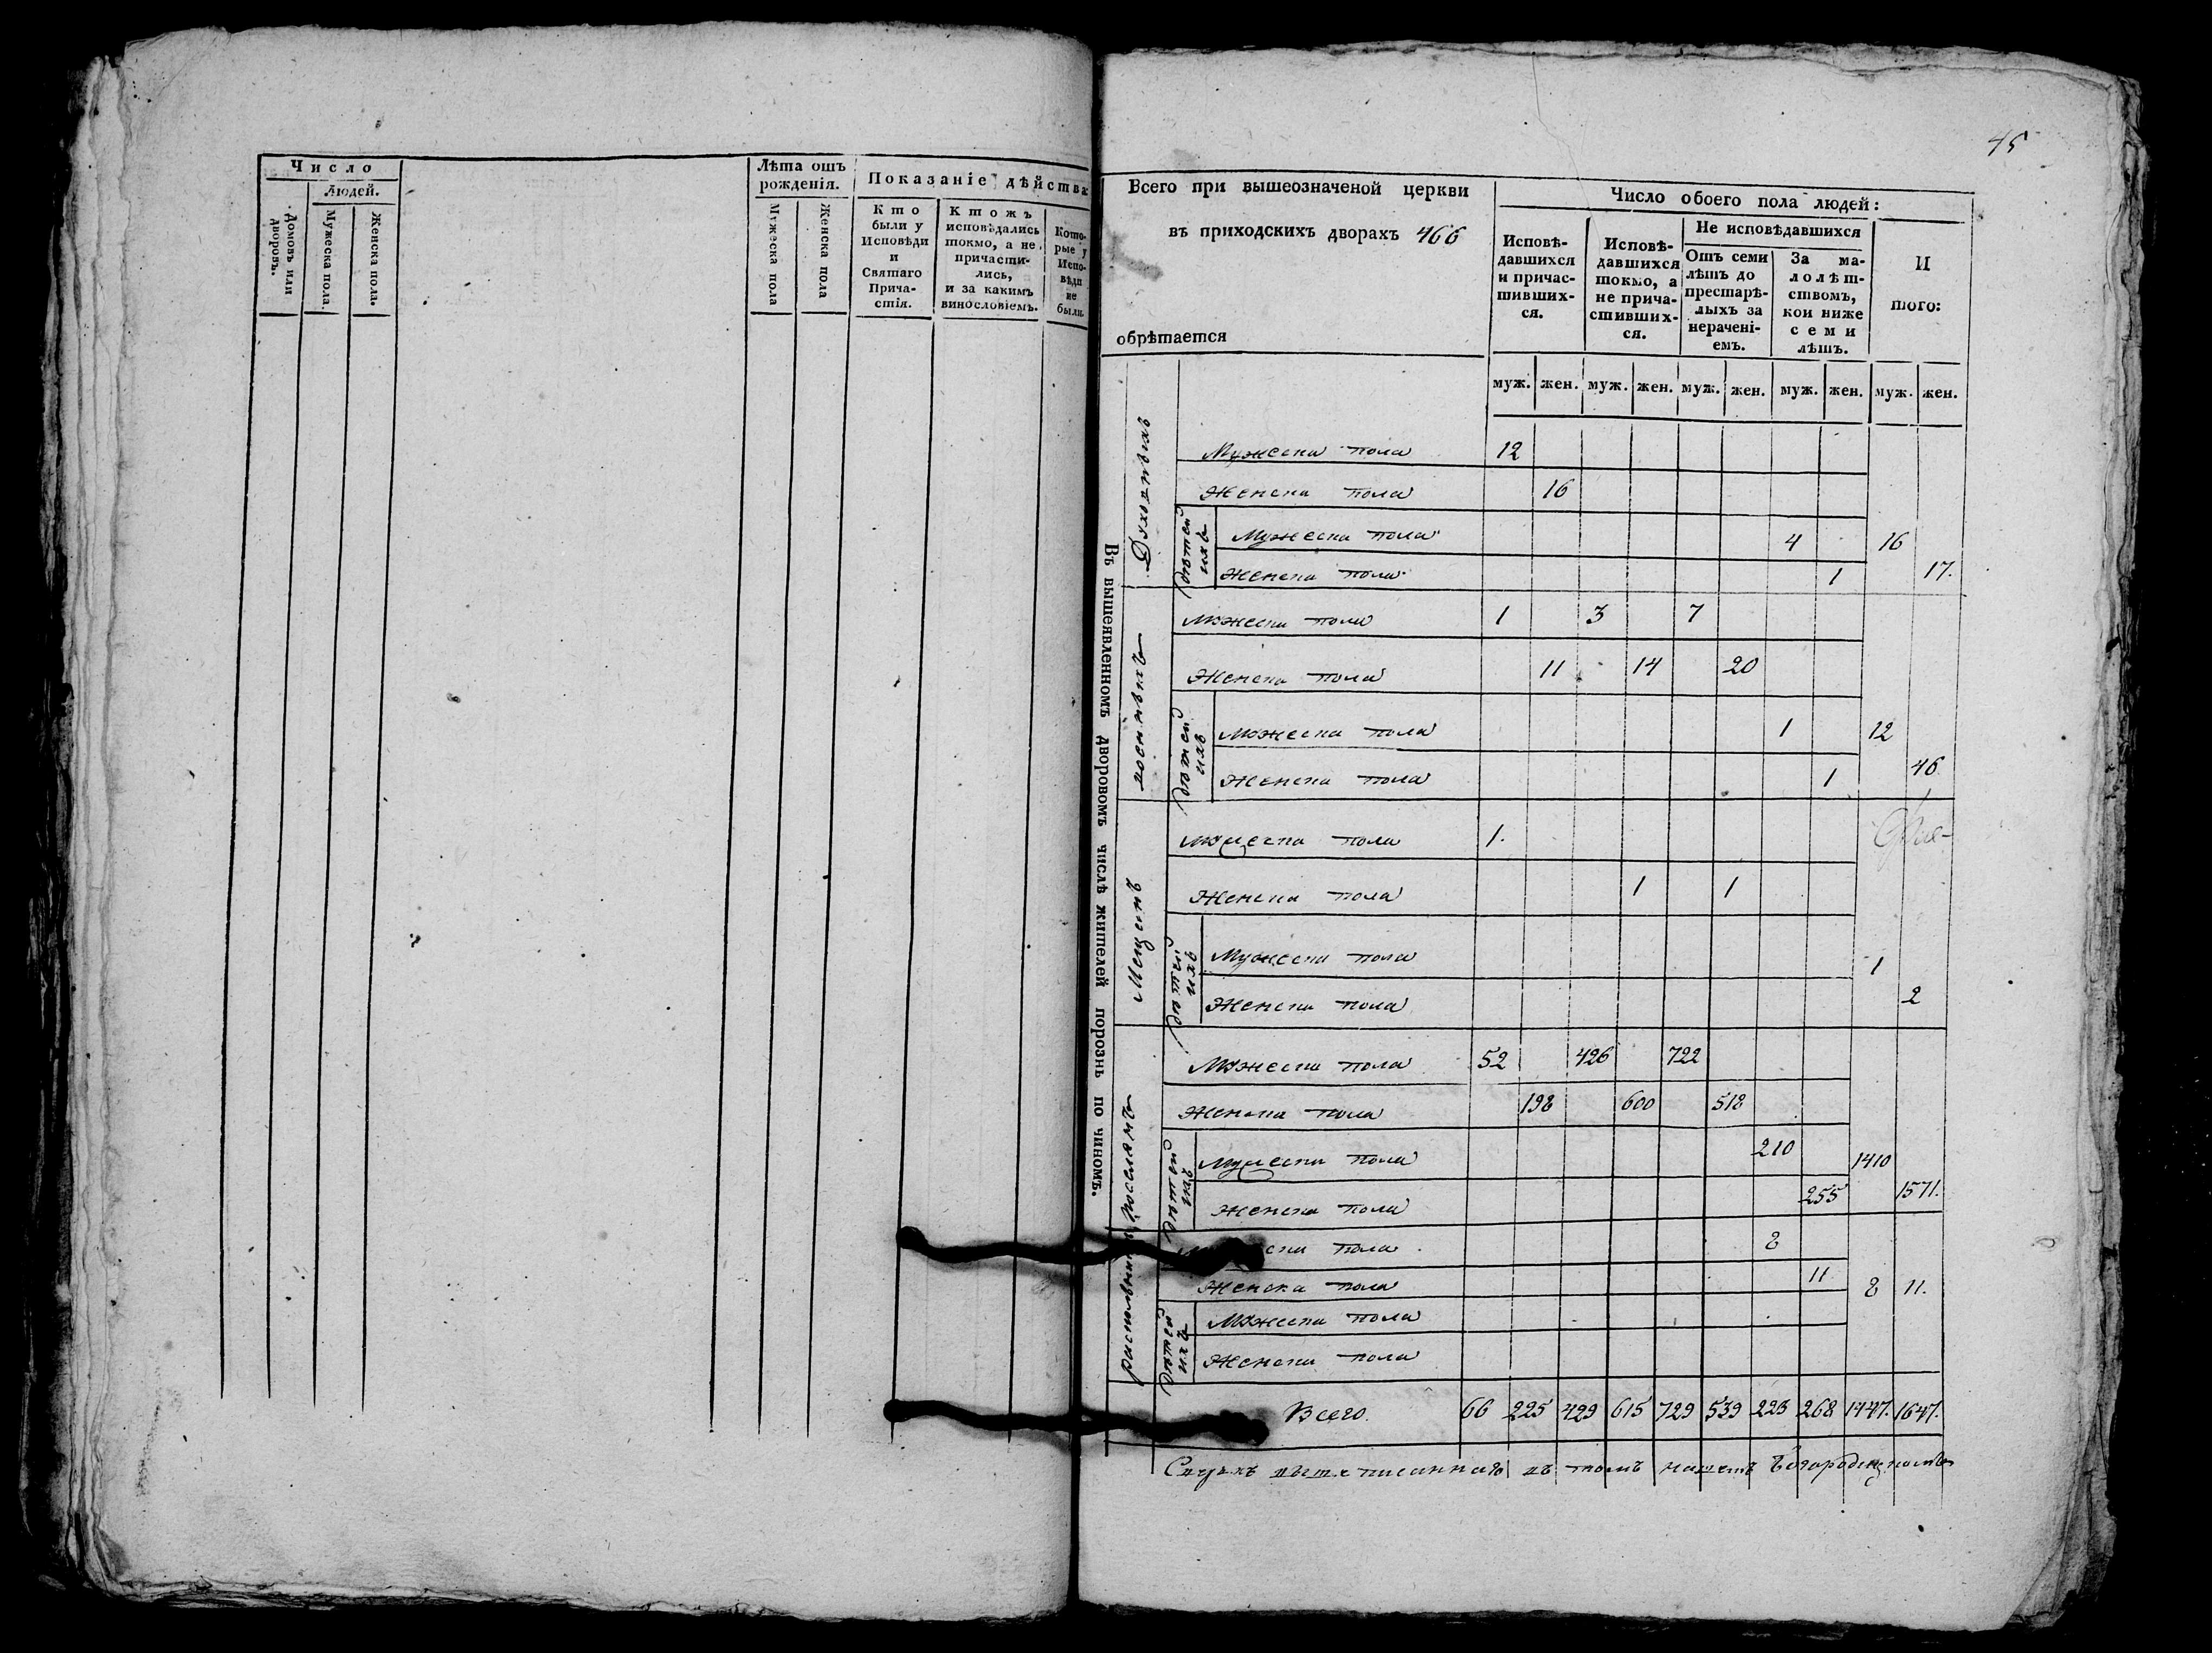 Число
Людей.
Домовъ или дворовъ.
Мужеска пола.
Женска пола.
Лѣта отъ рожденія.
Мужеска пола
Женска пола
Показаніе дѣйства
Кто были у Исповѣди и Святаго Причастія.
Ктожъ исповѣдались токмо, а не причастились, и за какимъ винословіемъ.
Которые у Исповѣди не были.
45
Всего при вышеозначеной церкви
въ приходскихъ дворахъ 466
обрѣтается
Число обоего пола людей:
Исповѣдавшихся и причастившихся.
Исповѣдавшихся токмо, а не причастившихся.
Не исповѣдавшихся
Отъ семи лѣтъ до престарѣлыхъ за нераченіемъ.
За малолѣтствомъ, кои ниже семи лѣтъ.
Итого:
муж. жен. муж. жен. муж. жен. муж. жен. муж. жен.
Въ вышеявленномъ дворовомъ числѣ жителей порознь по чиномъ.
Духовныхъ
Мужеска пола 12
Женска пола 16
Дѣтей ихъ
Мужеска пола 4 16
Женска пола 1 17.
военныхъ
Мужеска пола 1 3 7
Женска пола 11 14 20
Дѣтей ихъ
Мужеска пола 1 12
Женска пола 1 46
Мещанъ
Мужеска пола 1.
Женска пола 1 1
Дѣтей ихъ
Мужеска пола 1
Женска пола 2
поселянъ
Мужеска пола 52 426 722
Женска пола 198 600 518
Дѣтей ихъ
Мужеска пола 210 1410
Женска пола 255 1571.
пола 8
Женска пола 11 8 11.
Дѣтей ихъ
Мужеска пола
Женска пола
Всего. 66 225 429 615 729 539 223 268 1447. 1647.
въ томъ